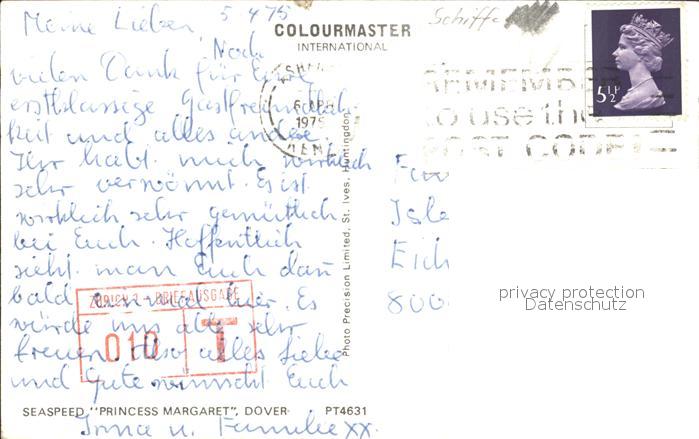 Meine Lieben, 5 4 75
Noch
vielen Dank für Eure
erstklassige Gastfreundlich-
keit und alles andere.
Ihr habt mich wirklich
sehr verwöhnt. Es ist
wirklich sehr gemütlich
bei Euch. Hoffentlich
sieht man Euch dan
bald einmal hier. Es
würde uns alle sehr
freuen. Also alles Liebe
und Gute wünscht Euch
Irma u. Familie xx.
COLOURMASTER
INTERNATIONAL
Schiffe
5½P
APR
1975
REMEMBER
to use the
POST CODE
Photo Precision Limited, St. Ives, Huntingdon
Isle
Eich
800
privacy protection
Datenschutz
ZÜRICH 1 - BRIEFAUSGABE
010 T
SEASPEED "PRINCESS MARGARET", DOVER PT4631